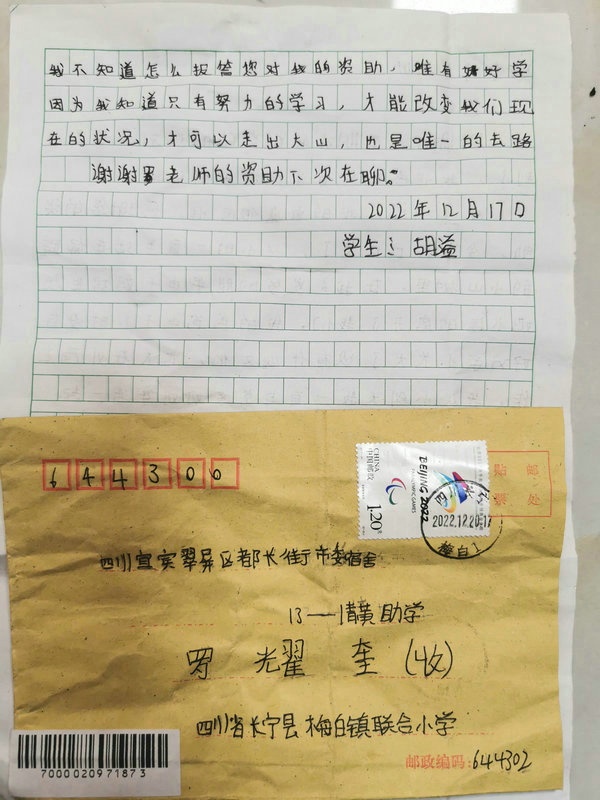 我不知道怎么报答您对我的资助，唯有好好学
因为我知道只有努力的学习，才能改变我们现
在的状况，才可以走出大山，也是唯一的去路
谢谢罗老师的资助下次在聊。
2022年12月17日
学生：胡溢
644300
CHINA
中国邮政
1.20
BEIJING 2022
PARALYMPIC GAMES
贴邮
票处
四川
2022.12.20.17
梅白
四川宜宾翠屏区都长街市委宿舍
13—1 黄助学
罗光翟奎(收)
四川省长宁县梅白镇联合小学
邮政编码：644302
7000020971873